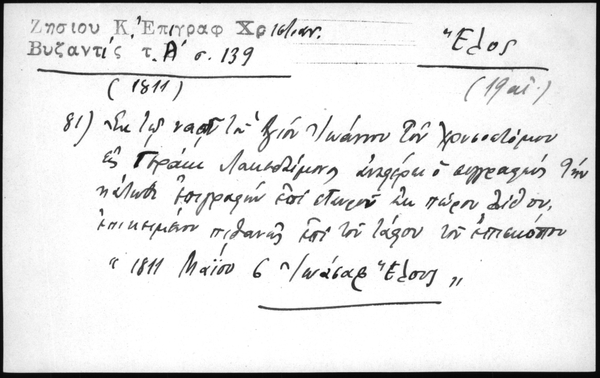 Ζησίου Κ. Ἐπιγραφ Χριστιαν.
Βυζαντίς τ. Α' σ. 139
Ἕλος
(1811)
(19 αἰ.)
81) Ἐκ τοῦ ναοῦ τοῦ Ἁγίου Ἰωάννου τοῦ Χρυσοστόμου
εἰς Γοράνι Λακεδαίμονος ἀναφέρει ὁ συγγραφεύς τήν
κάτωθι ἐπιγραφήν ἐπί σταυροῦ ἐκ πώρου λίθου,
ἐπικειμένου πιθανῶς ἐπί τοῦ τάφου τοῦ ἐπισκόπου
" 1811 Μαΐου 6 Ἰωάσαφ Ἕλους "